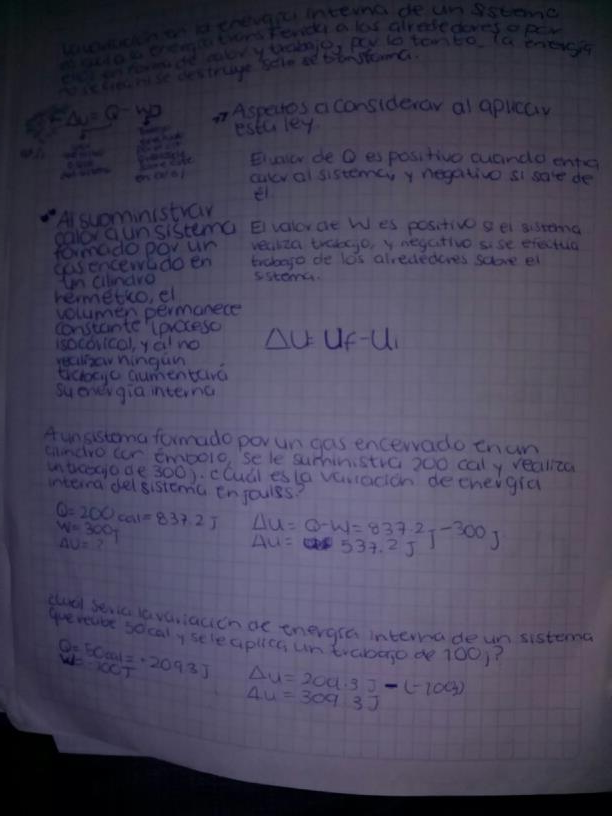 La variación en la energía interna de un sistema
es igual a la energía transferida a los alrededores o por
ellos en forma de calor y trabajo, por lo tanto, la energía
no se crea ni se destruye solo se transforma.
ΔU = Q - W
Aspectos a considerar al aplicar
esta ley.
El valor de Q es positivo cuando entra
calor al sistema, y negativo si sale de
él.
El valor de W es positivo si el sistema
realiza trabajo, y negativo si se efectua
trabajo de los alrededores sobre el
sistema.
ΔU = Uf - Ui
Al suministrar
calor a un sistema
formado por un
gas encerrado en
un cilindro
hermético, el
volumen permanece
constante (proceso
isocórico), y al no
realizar ningún
trabajo aumentará
su energía interna
A un sistema formado por un gas encerrado en un
cilindro con émbolo, se le suministra 200 cal y realiza
un trabajo de 300j. ¿Cuál es la variación de energía
interna del sistema en joules?
Q = 200 cal = 837.2 J
W = 300J
ΔU = ?
ΔU = Q - W = 837.2 J - 300 J
ΔU = 537.2 J
¿Cuál sería la variación de energía interna de un sistema
que recibe 50 cal y se le aplica un trabajo de 100j?
Q = 50 cal = 209.3 J
W = -100J
ΔU = 209.3 J - (-100J)
ΔU = 309.3 J